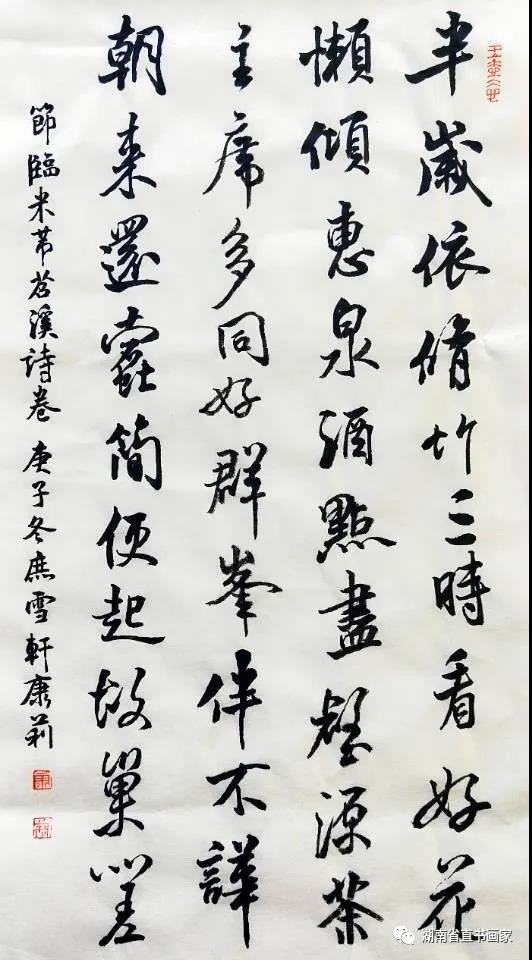 半歲依脩竹三時看好花
懶傾惠泉酒點盡壑源茶
主席多同好群峯伴不譁
朝来還蠹簡便起故巢嗟
節臨米芾苕溪詩卷 庚子冬庶雪軒康莉
湖南省直书画家